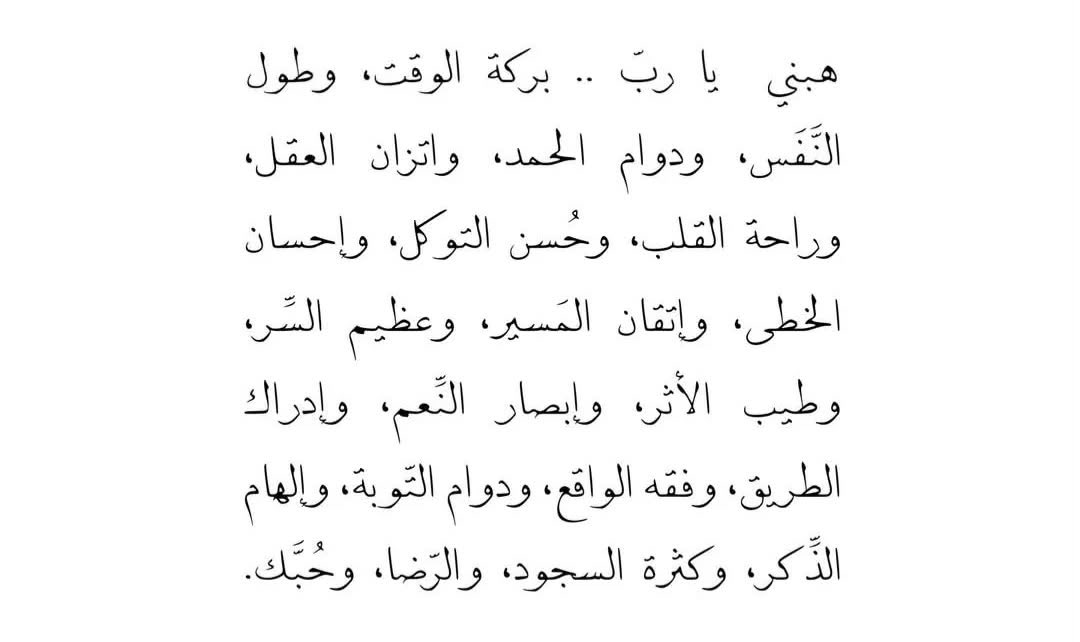 هبني يا ربّ .. بركة الوقت، وطول
النَّفَس، ودوام الحمد، واتزان العقل،
وراحة القلب، وحُسن التوكل، وإحسان
الخطى، وإتقان المَسير، وعظيم السِّر،
وطيب الأثر، وإبصار النِّعم، وإدراك
الطريق، وفقه الواقع، ودوام التّوبة، وإلهام
الذِّكر، وكثرة السجود، والرّضا، وحُبَّك.